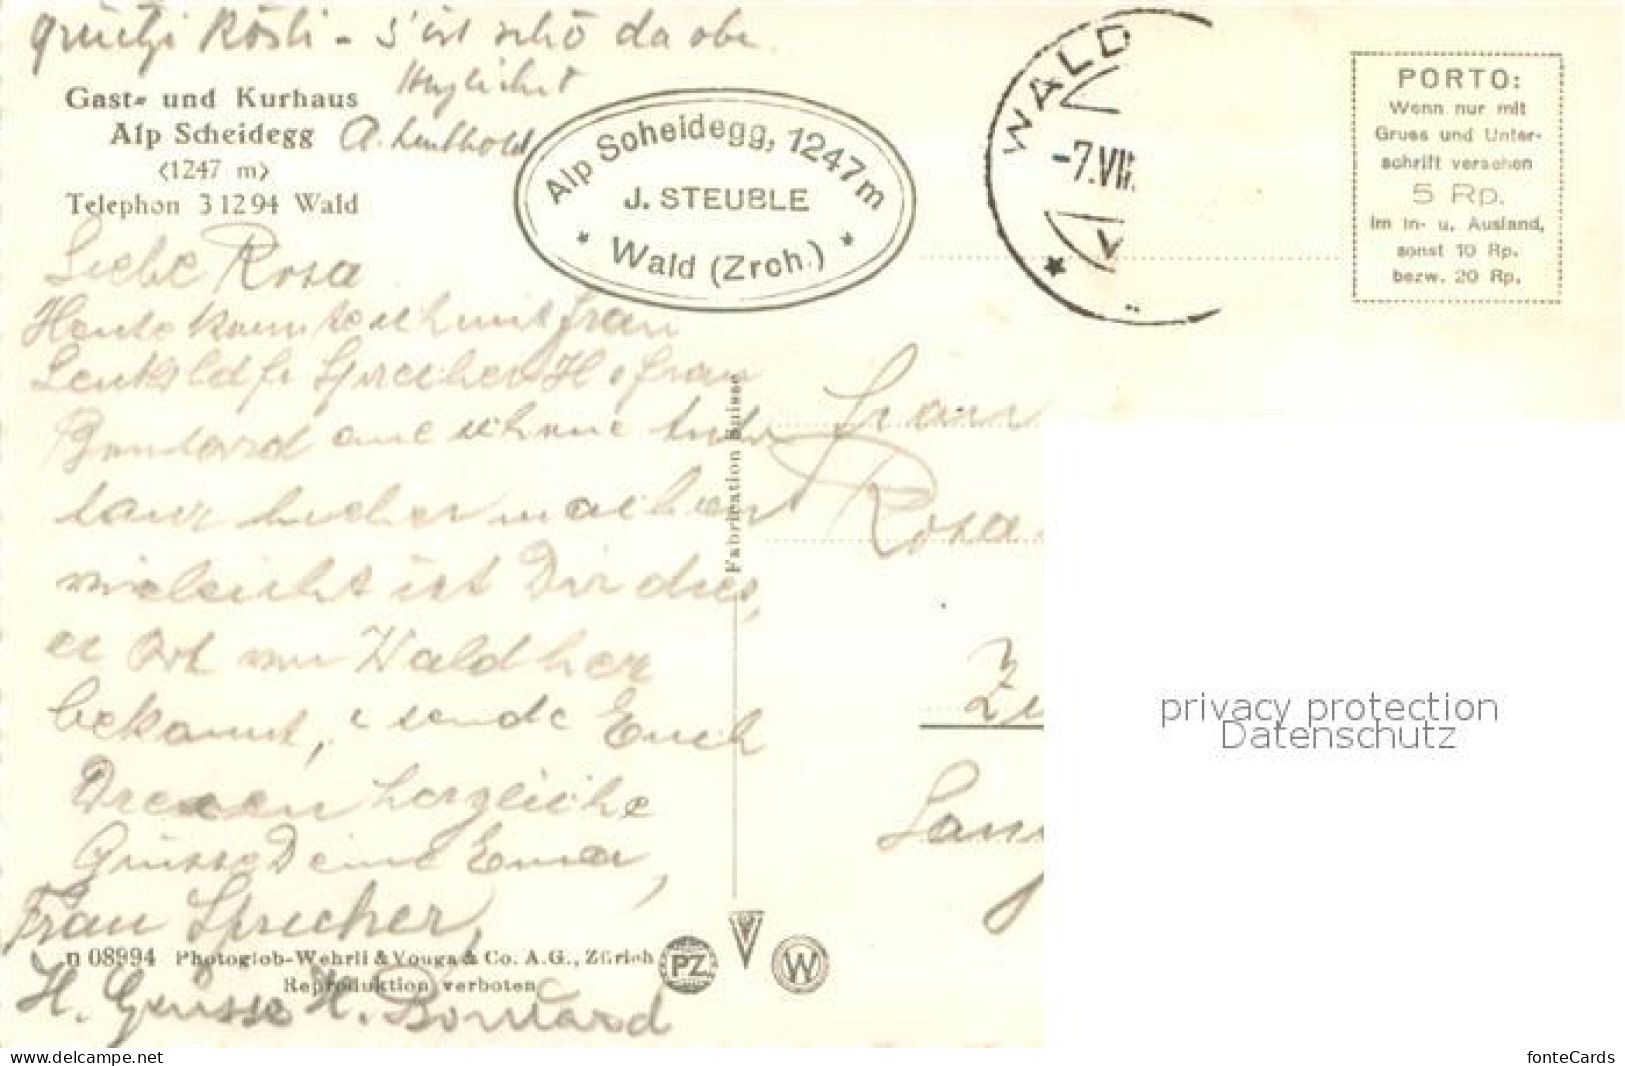 grüetzi Rösli - s'ist schö da obe
Herzlichst
A. Leuthold
Gast- und Kurhaus
Alp Scheidegg
(1247 m)
Telephon 3 12 94 Wald
Alp Scheidegg, 1247m
J. STEUBLE
* Wald (Zrch.) *
WALD
-7.VII.
PORTO:
Wenn nur mit
Gruss und Unter-
schrift versehen
5 Rp.
Im In- u. Ausland,
sonst 10 Rp.
bezw. 20 Rp.
Liebe Rosa
Heute kam ich mit Frau
Leuthold Fr Sprecher H Frau
Bommard eine schöne
tour hieher machen
vieleicht ist Dir dies,
er Ort von Wald her
bekannt, sende Euch
Dreien herzliche
Grüsse Deine Emma,
Frau Sprecher,
H. Grüsse H. Bommard
Fabrication Suisse
Frau
Rosa
Zü
Lang
n 08994 Photoglob-Wehrli & Vouga & Co. A.G., Zürich
Reproduktion verboten
PZ
V
W
privacy protection
Datenschutz
www.delcampe.net
fonteCards